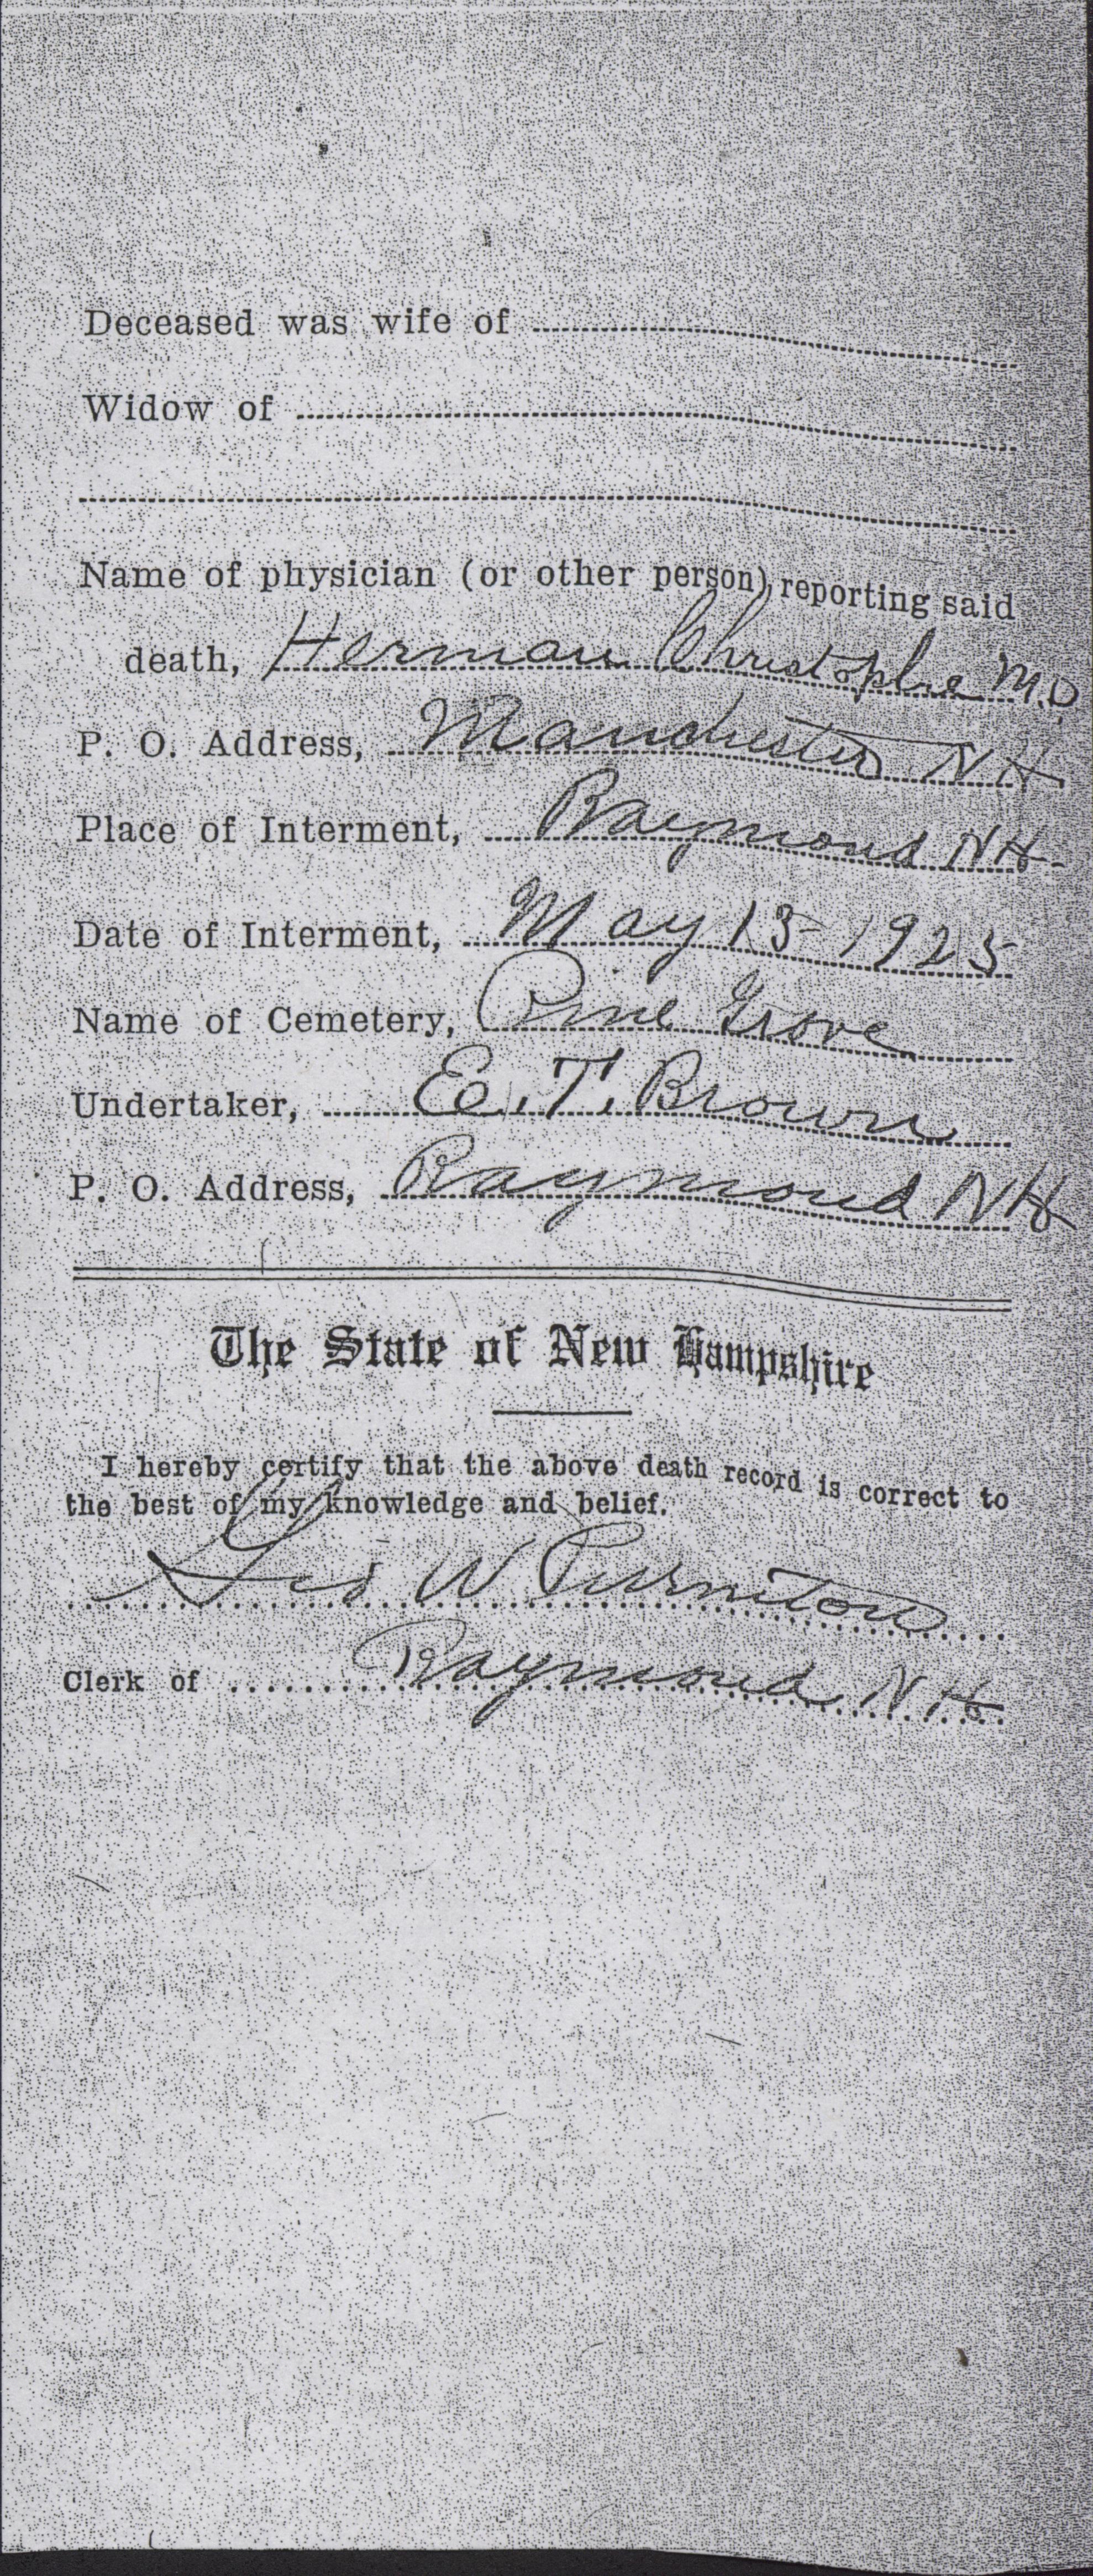 Deceased was wife of
Widow of
Name of physician (or other person) reporting said
death, Herman Christophe M.D
P. O. Address, Manchester N H
Place of Interment, Raymond N H
Date of Interment, May 13 - 1925
Name of Cemetery, Pine Grove
Undertaker, E. T. Brown
P. O. Address, Raymond N H
The State of New Hampshire
I hereby certify that the above death record is correct to
the best of my knowledge and belief.
Geo W Purinton
Clerk of Raymond N H